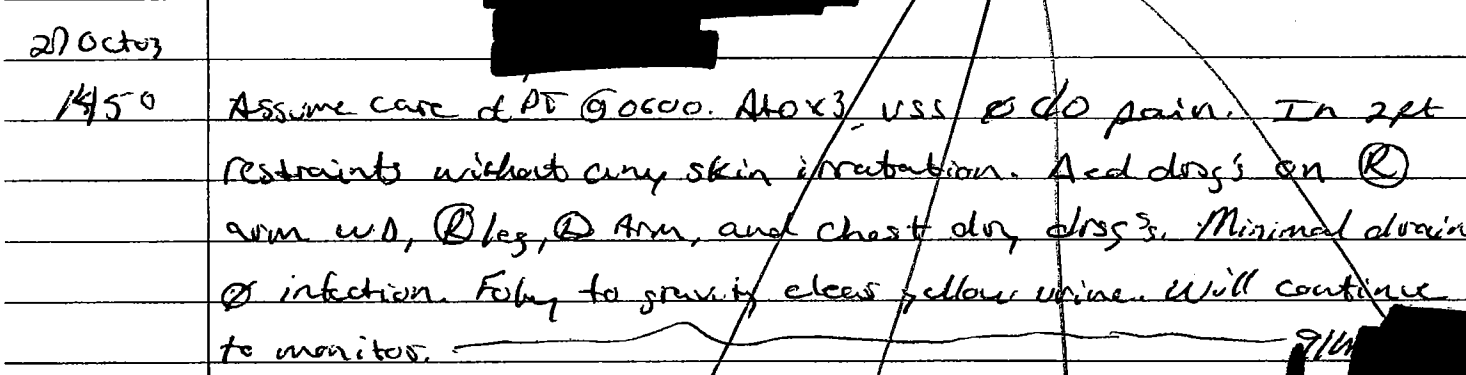 27 Oct 03
1450 Assume care of PT @ 0600. A+O x3, VSS ø c/o pain. In 2pt
restraints without any skin irratation. Acd drsg's on Ⓡ
arm WD, Ⓡ leg, Arm, and chest dry drsg's. Minimal drain
ø infection. Foley to gravity clear yellow urine. Will continue
to monitor.